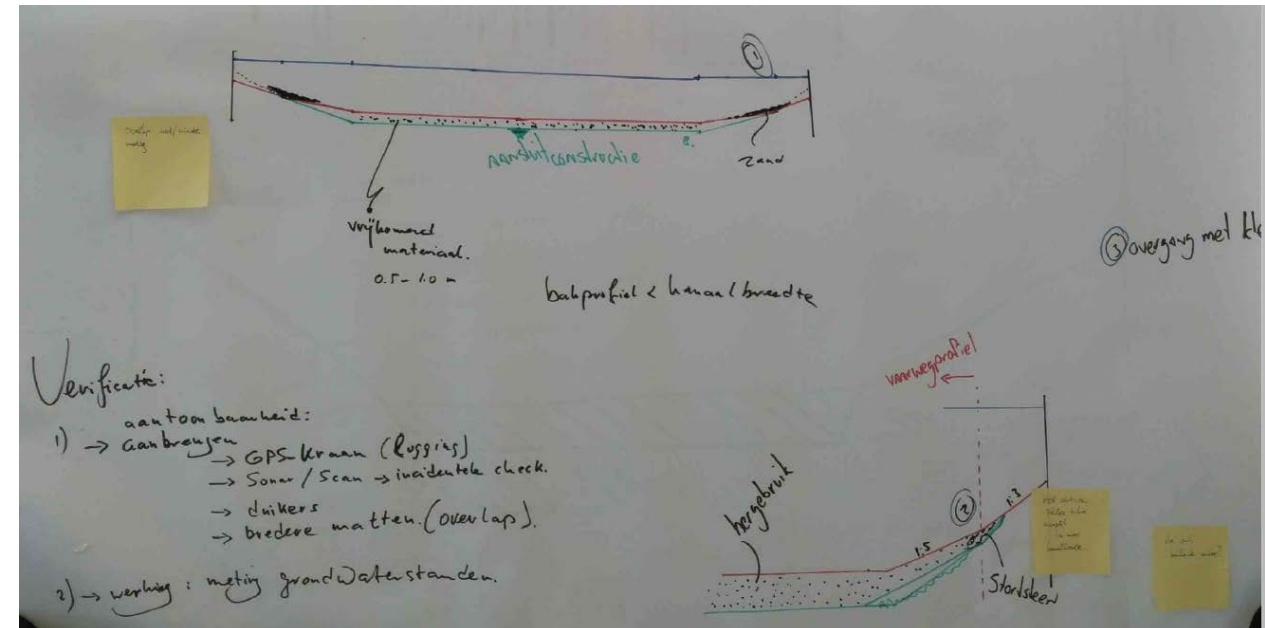 ①
aansluitconstructie
2.
zand
vrijkomend
materiaal.
0.5 - 1.0 m
bakprofiel < kanaalbreedte
③ overgang met kl
Verificatie:
aantoonbaarheid:
1) → aanbrengen
→ GPS-kraan (logging)
→ Sonar / Scan → incidentele check.
→ duikers
→ bredere matten. (overlap).
2) → werking : meting grondwaterstanden.
vaarwegprofiel
hergebruik
②
1:3
1:5
Stortsteen